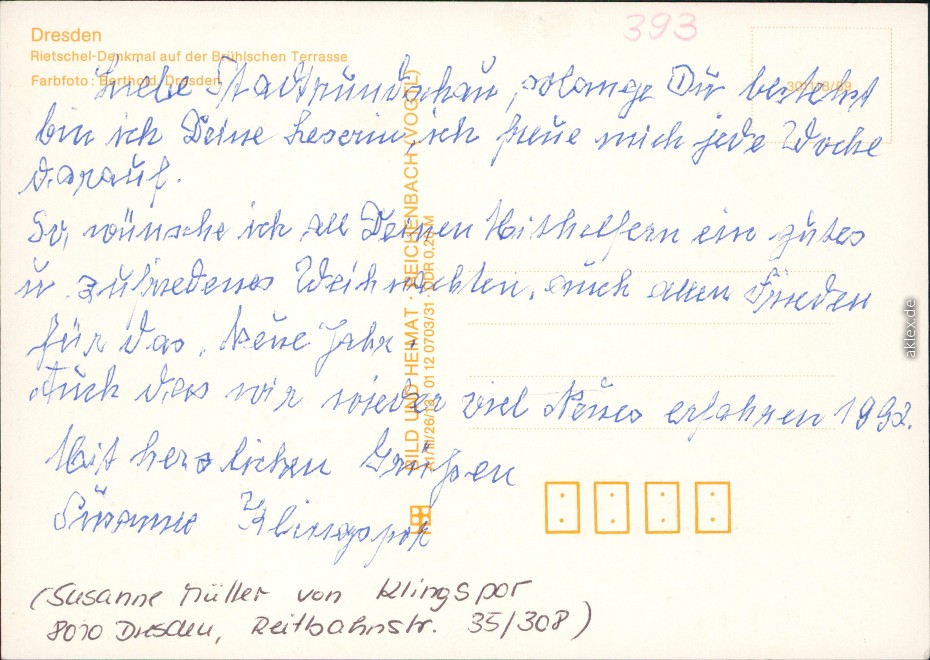 393
Dresden
Rietschel-Denkmal auf der Brühlschen Terrasse
Farbfoto: Berthold, Dresden
Liebe Stadtrundschau, solange Du bestehst
bin ich Deine Leserin, ich freue mich jede Woche
darauf.
So, wünsche ich all Deinen Mithelfern ein gutes
u. zufriedenes Weihnachten, auch allen Frieden
für das, Neue Jahr.
Auch das wir wieder viel Neues erfahren 1992.
Mit herzlichen Grüßen
Susanne Klingspor
(Susanne Müller von Klingspor
8010 Dresden, Reitbahnstr. 35/308)
BILD UND HEIMAT · REICHENBACH (VOGTL)
01 12 0703/31 · DDR 0,20 M
aklex.de